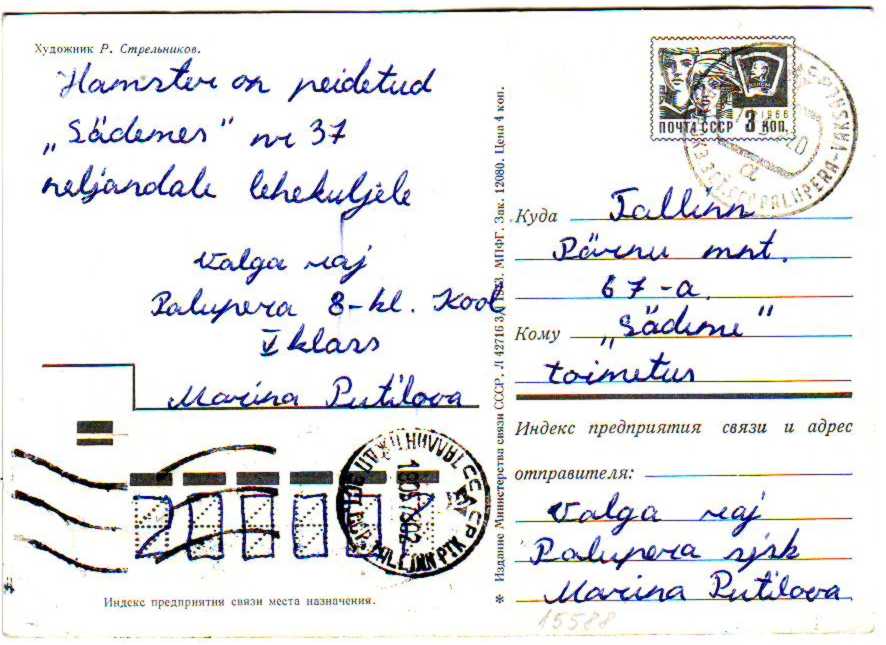 Художник Р. Стрельников.
Hamster on peidetud
„Sädemes" nr 37
neljandale leheküljele
Valga raj
Palupera 8-kl. Kool
V klass
Marina Putilova
Индекс предприятия связи места назначения.
✻ Издание Министерства связи СССР. Л 42716 МПФГ. Зак. 12080. Цена 4 коп.
ПОЧТА СССР 3 КОП.
1966
PALUPERA
Куда Tallinn
Pärnu mnt.
67-a.
Кому „Sädeme"
toimetus
Индекс предприятия связи и адрес
отправителя:
Valga raj
Palupera sjsk
Marina Putilova
15588